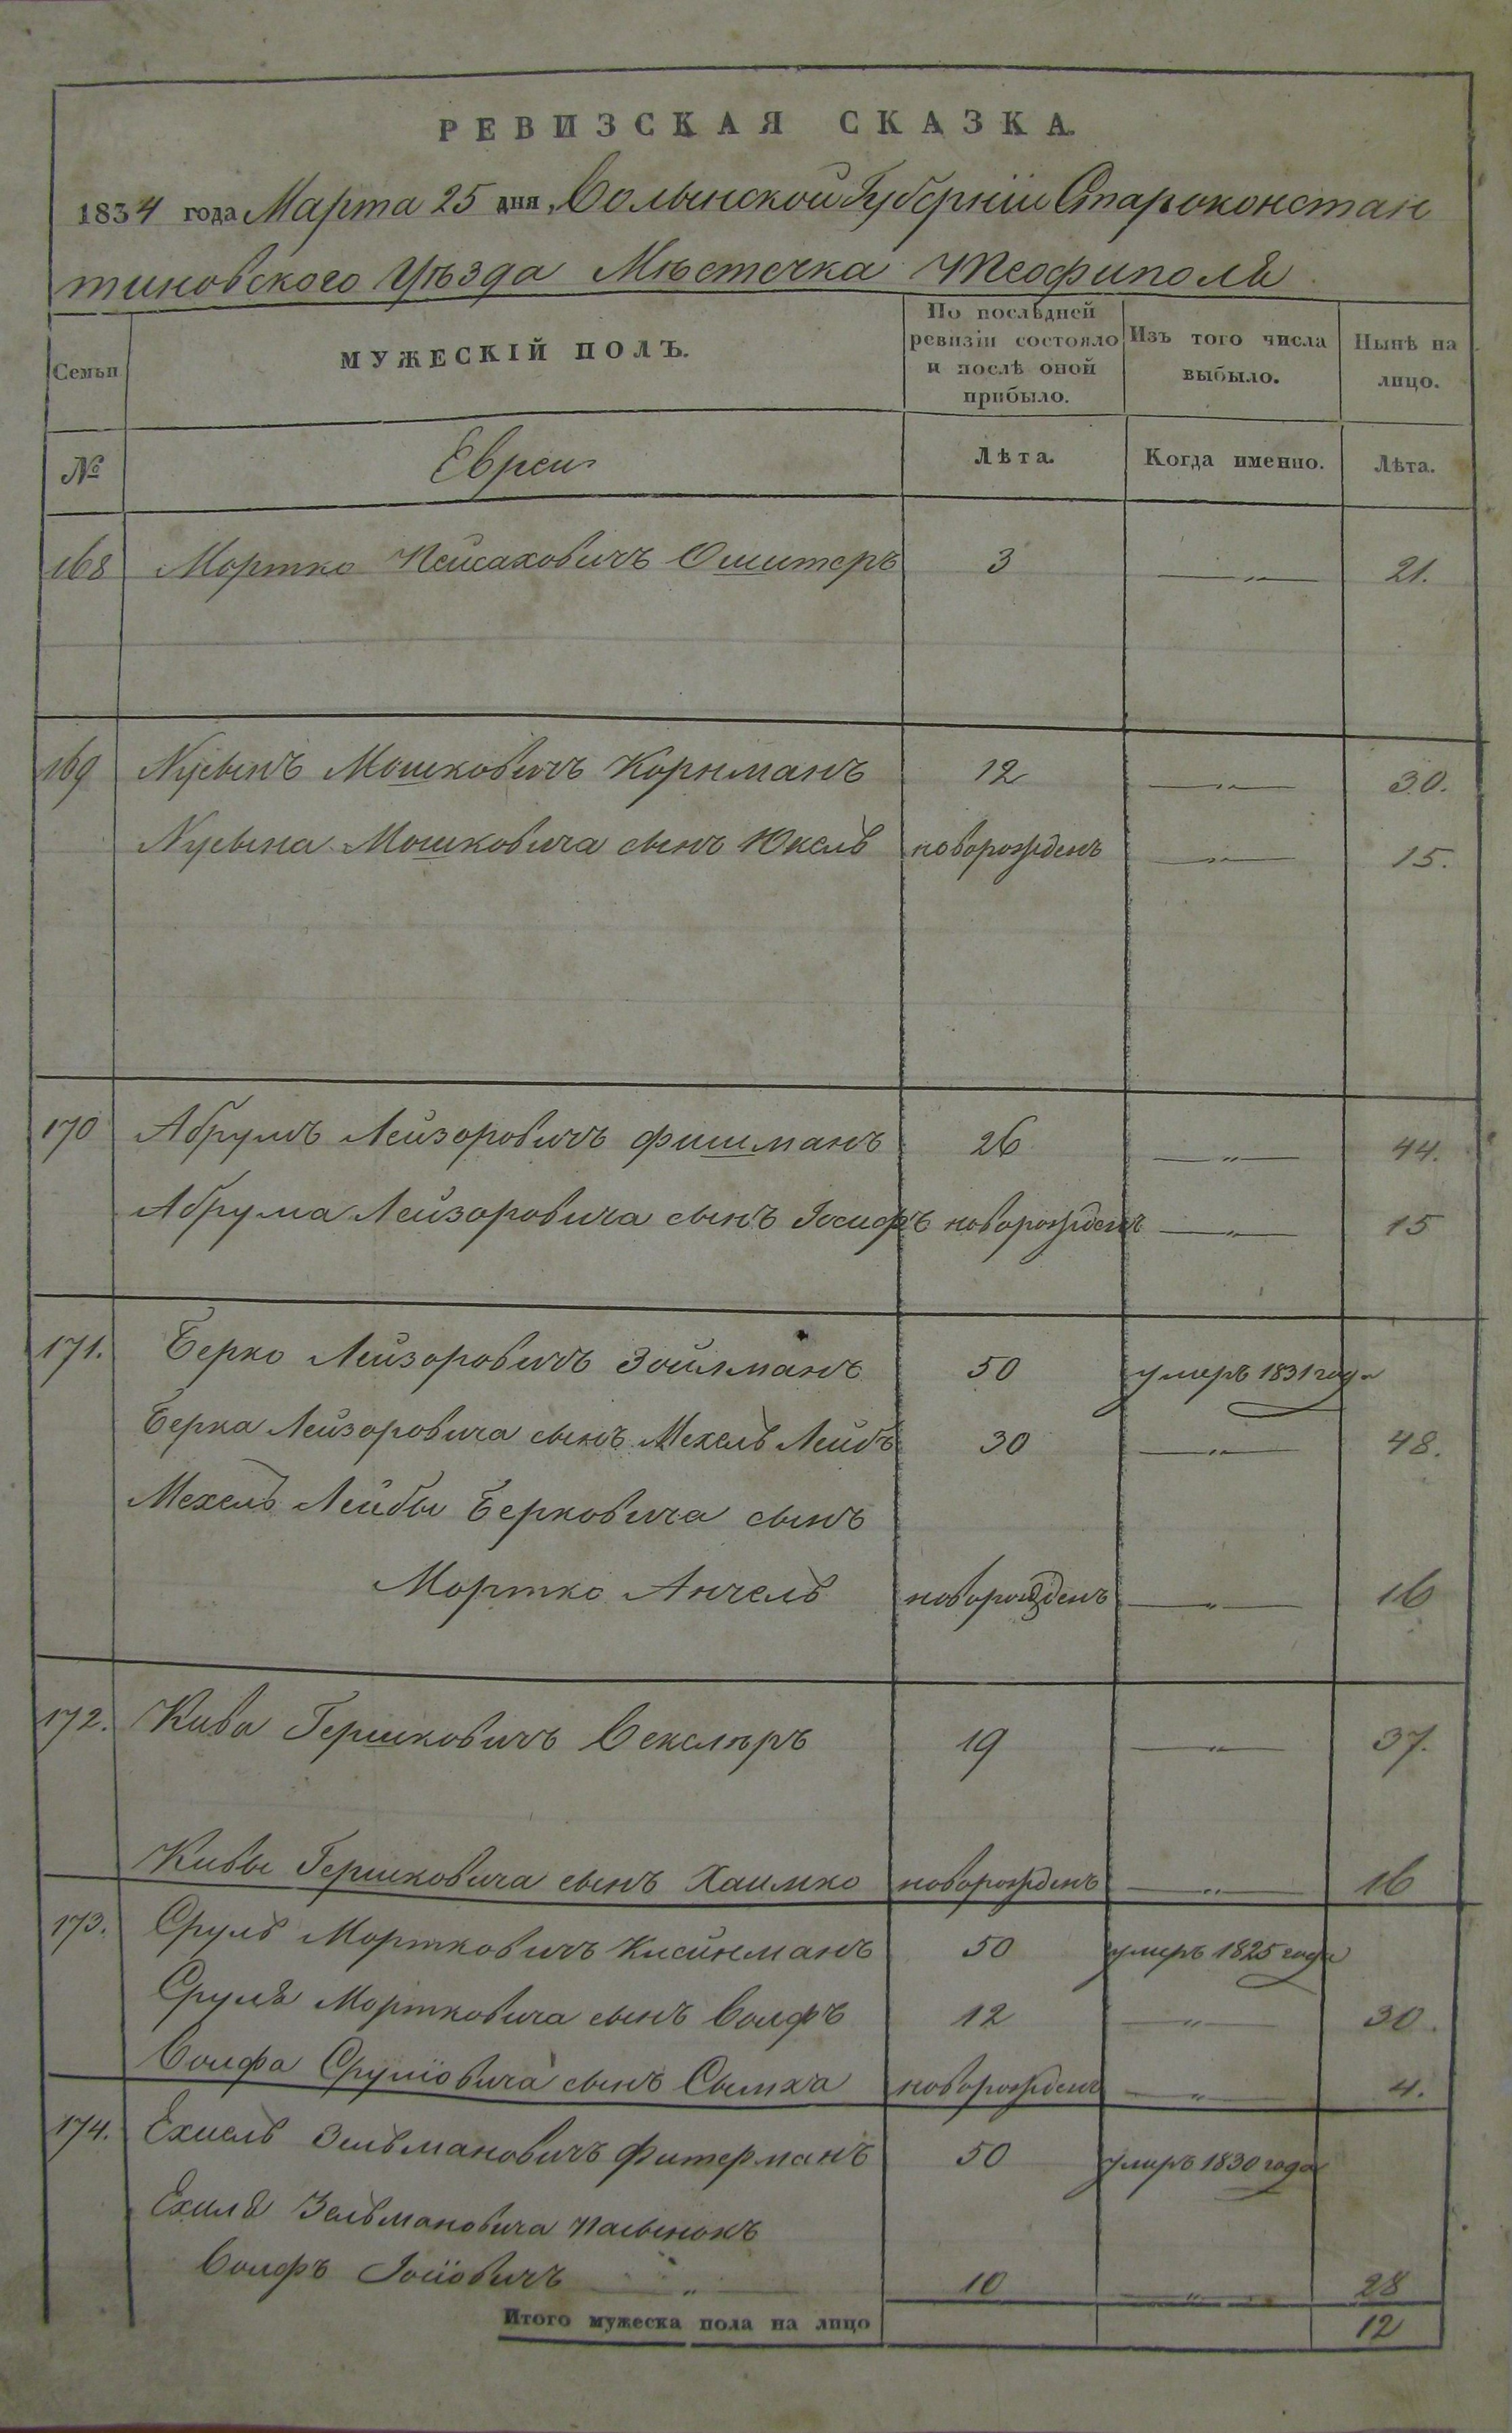 РЕВИЗСКАЯ СКАЗКА.
1834 года Марта 25 дня, Волынской Губерніи Староконстан
тиновского Уѣзда Мѣстечка Теофиполя
Семьи
МУЖЕСКІЙ ПОЛЪ.
По послѣдней ревизіи состояло и послѣ оной прибыло.
Изъ того числа выбыло.
Нынѣ на лицо.
№ Евреи Лѣта. Когда именно. Лѣта.
168 Мортко Пейсаховичъ Ошитеръ 3 — „ — 21.
169 Нусынъ Мошковичъ Корнманъ 12 — „ — 30.
Нусына Мошковича сынъ Юкель новорожденъ — „ — 15.
170 Абрумъ Лейзоровичъ Фишманъ 26 — „ — 44.
Абрума Лейзоровича сынъ Іосифъ новорожденъ — „ — 15
171. Берко Лейзоровичъ Зойлманъ 50 умеръ 1831 года
Берка Лейзоровича сынъ Мехель Лейбъ 30 — „ — 48.
Мехель Лейбы Берковича сынъ
Мортко Анчель новорожденъ — „ — 16
172. Кива Гершковичъ Векслѣръ 19 — „ — 37.
Кивы Гершковича сынъ Хаимко новорожденъ — „ — 16
173. Сруль Мортковичъ Клейнманъ 50 умеръ 1825 года
Сруля Мортковича сынъ Волфъ 12 — „ — 30.
Волфа Сруліовича сынъ Сымха новорожденъ — „ — 4.
174. Ехиель Зельмановичъ Фитерманъ 50 умеръ 1830 года
Ехиля Зельмановича пасынокъ
Волфъ Іосіовичъ — „ — 10 — „ — 28
Итого мужеска пола на лицо 12